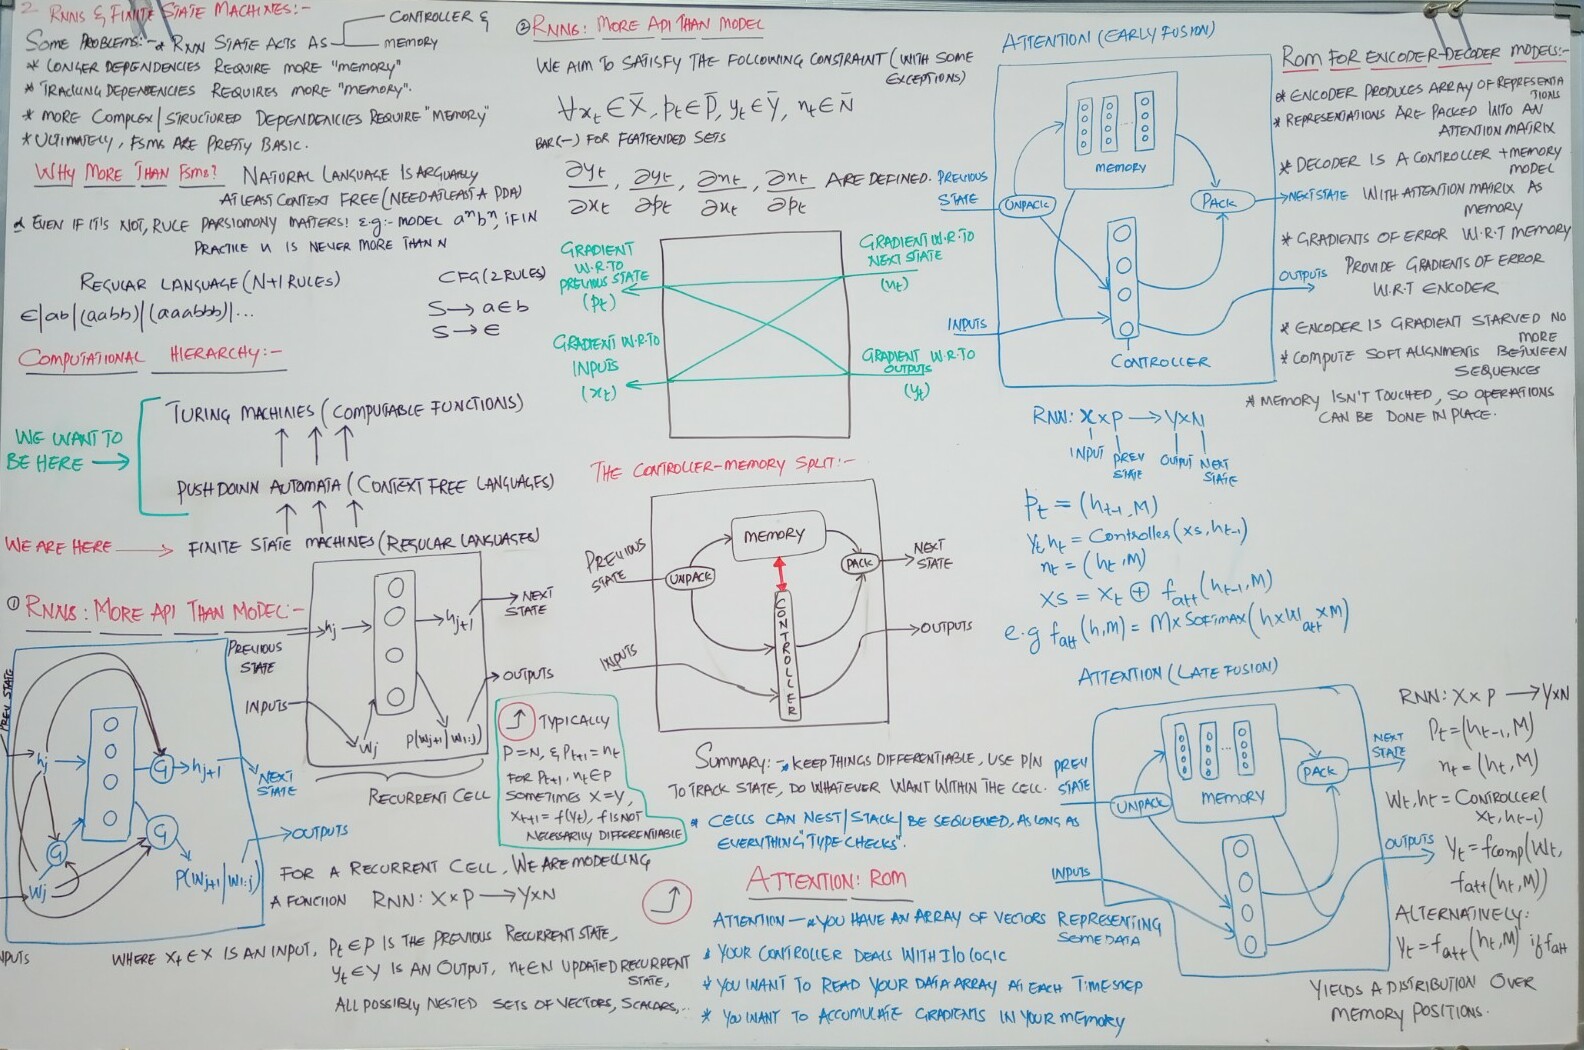 2. RNNS & FINITE STATE MACHINES:-
SOME PROBLEMS:- * RNN STATE ACTS AS
CONTROLLER &
MEMORY
* LONGER DEPENDENCIES REQUIRE MORE "MEMORY"
* TRACKING DEPENDENCIES REQUIRES MORE "MEMORY".
* MORE COMPLEX/STRUCTURED DEPENDENCIES REQUIRE "MEMORY"
* ULTIMATELY, FSMS ARE PRETTY BASIC.
WHY MORE THAN FSMS? NATURAL LANGUAGE IS ARGUABLY
AT LEAST CONTEXT FREE (NEED ATLEAST A PDA)
* EVEN IF IT'S NOT, RULE PARSIOMONY MATTERS! E.g:- MODEL aⁿbⁿ, IF IN
PRACTILE n IS NEVER MORE THAN N
REGULAR LANGUAGE (N+1 RULES)
ϵ|ab|(aabb)|(aaabbb)|...
CFG (2 RULES)
S→aϵb
S→ϵ
COMPUTATIONAL HIERARCHY:-
WE WANT TO
BE HERE →
TURING MACHINES (COMPUTABLE FUNCTIONS)
↑ ↑ ↑
PUSH DOWN AUTOMATA (CONTEXT FREE LANGUAGES)
↑ ↑ ↑
WE ARE HERE → FINITE STATE MACHINES (REGULAR LANGUAGES)
① RNNS: MORE API THAN MODEL:-
PREVIOUS
STATE
hj
hj+1
NEXT
STATE
INPUTS
Wj
P(Wj+1|W1:j)
OUTPUTS
RECURRENT CELL
PREV STATE
hj
G
hj+1
NEXT
STATE
G
G
Wj
P(Wj+1|W1:j)
OUTPUTS
NPUTS
TYPICALLY
P=N, & Pt+1 = nt
FOR Pt+1, nt∈P
SOMETIMES X=Y,
Xt+1 = f(Yt), f IS NOT
NECESSARILY DIFFERENTIABLE
FOR A RECURRENT CELL, WE ARE MODELLING
A FUNCTION RNN: X×P → Y×N
WHERE Xt∈X IS AN INPUT, Pt∈P IS THE PREVIOUS RECURRENT STATE,
yt∈Y IS AN OUTPUT, nt∈N UPDATED RECURRENT
STATE,
ALL POSSIBLY NESTED SETS OF VECTORS, SCALARS,...
② RNNS: MORE API THAN MODEL
WE AIM TO SATISFY THE FOLLOWING CONSTRAINT (WITH SOME
EXCEPTIONS)
∀xt∈X̄, pt∈P̄, yt∈Ȳ, nt∈N̄
BAR (-) FOR FGATTENDED SETS
∂yt/∂xt, ∂yt/∂pt, ∂nt/∂xt, ∂nt/∂pt ARE DEFINED.
GRADIENT
W.R.TO
PREVIOUS STATE
(pt)
GRADIENT W.R.TO
NEXT STATE
(nt)
GRADIENT W.R.TO
INPUTS
(xt)
GRADIENT W.R.TO
OUTPUTS
(yt)
THE CONTROLLER-MEMORY SPLIT:-
PREVIOUS
STATE
UNPACK
MEMORY
PACK
NEXT
STATE
CONTROLLER
INPUTS
OUTPUTS
SUMMARY:- * KEEP THINGS DIFFERENTIABLE, USE P/N
TO TRACK STATE, DO WHATEVER WANT WITHIN THE CELL.
* CELLS CAN NEST/STACK/BE SEQUENCED, AS LONG AS
EVERYTHING "TYPE CHECKS".
ATTENTION: ROM
ATTENTION — * YOU HAVE AN ARRAY OF VECTORS REPRESENTING
SOME DATA
* YOUR CONTROLLER DEALS WITH I/O LOGIC
* YOU WANT TO READ YOUR DATA ARRAY AT EACH TIMESTEP
* YOU WANT TO ACCUMULATE GRADIENTS IN YOUR MEMORY
ATTENTION (EARLY FUSION)
MEMORY
PREVIOUS
STATE
UNPACK
PACK
NEXT STATE
INPUTS
OUTPUTS
CONTROLLER
RNN: X×P → Y×N
INPUT
PREV
STATE
OUTPUT
NEXT
STATE
Pt = (ht-1, M)
Yt, ht = Controller (xs, ht-1)
nt = (ht, M)
xs = xt ⊕ fatt (ht-1, M)
e.g fatt (h, M) = M × Sofimax(h × Watt × M)
ATTENTION (LATE FUSION)
PREV
STATE
UNPACK
MEMORY
PACK
NEXT
STATE
INPUTS
OUTPUTS
ROM FOR ENCODER-DECODER MODELS:-
* ENCODER PRODUCES ARRAY OF REPRESENTA
TIONS
* REPRESENTATIONS ARE PACKED INTO AN
ATTENTION MATRIX
* DECODER IS A CONTROLLER + MEMORY
MODEL
WITH ATTENTION MATRIX AS
MEMORY
* GRADIENTS OF ERROR W.R.T MEMORY
PROVIDE GRADIENTS OF ERROR
W.R.T ENCODER
* ENCODER IS GRADIENT STARVED NO
MORE
* COMPUTE SOFT ALIGNMENTS BETWEEN
SEQUENCES
* MEMORY ISN'T TOUCHED, SO OPERATIONS
CAN BE DONE IN PLACE.
RNN: X×P → Y×N
Pt = (ht-1, M)
nt = (ht, M)
Wt, ht = CONTROLLER(
xt, ht-1)
Yt = fcomp(Wt,
fatt (ht, M))
ALTERNATIVELY:
Yt = fatt (ht, M) if fatt
YIELDS A DISTRIBUTION OVER
MEMORY POSITIONS.